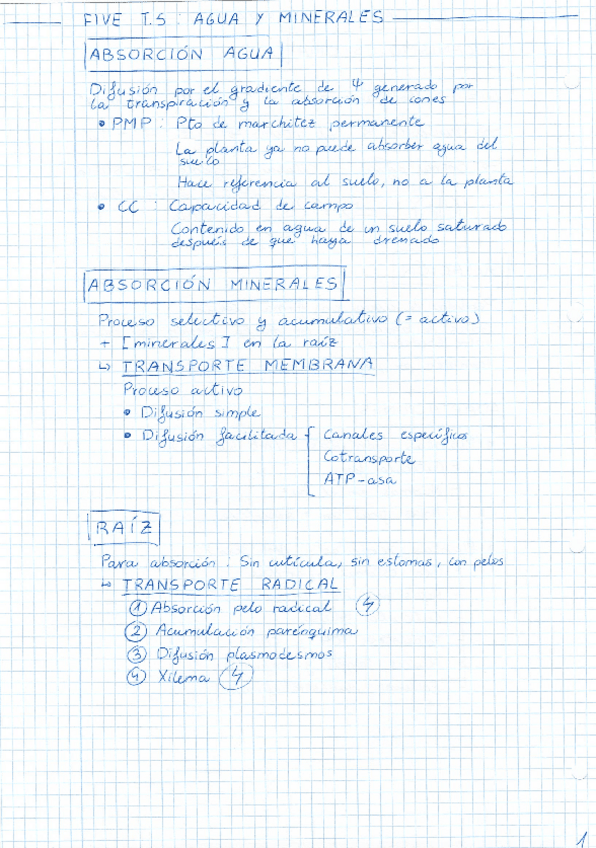 FIVE T.5 : AGUA Y MINERALES
ABSORCIÓN AGUA
Difusión por el gradiente de Ψ generado por
la transpiración y la absorción de iones
• PMP : Pto de marchitez permanente
La planta ya no puede absorber agua del
suelo
Hace referencia al suelo, no a la planta
• CC : Capacidad de campo
Contenido en agua de un suelo saturado
después de que haya drenado
ABSORCIÓN MINERALES
Proceso selectivo y acumulativo (= activo)
+ [minerales] en la raíz
↳ TRANSPORTE MEMBRANA
Proceso activo
• Difusión simple
• Difusión facilitada { Canales específicos
Cotransporte
ATP-asa
RAÍZ
Para absorción : Sin cutícula, sin estomas, con pelos
↳ TRANSPORTE RADICAL
① Absorción pelo radical
② Acumulación parénquima
③ Difusión plasmodesmos
④ Xilema
1